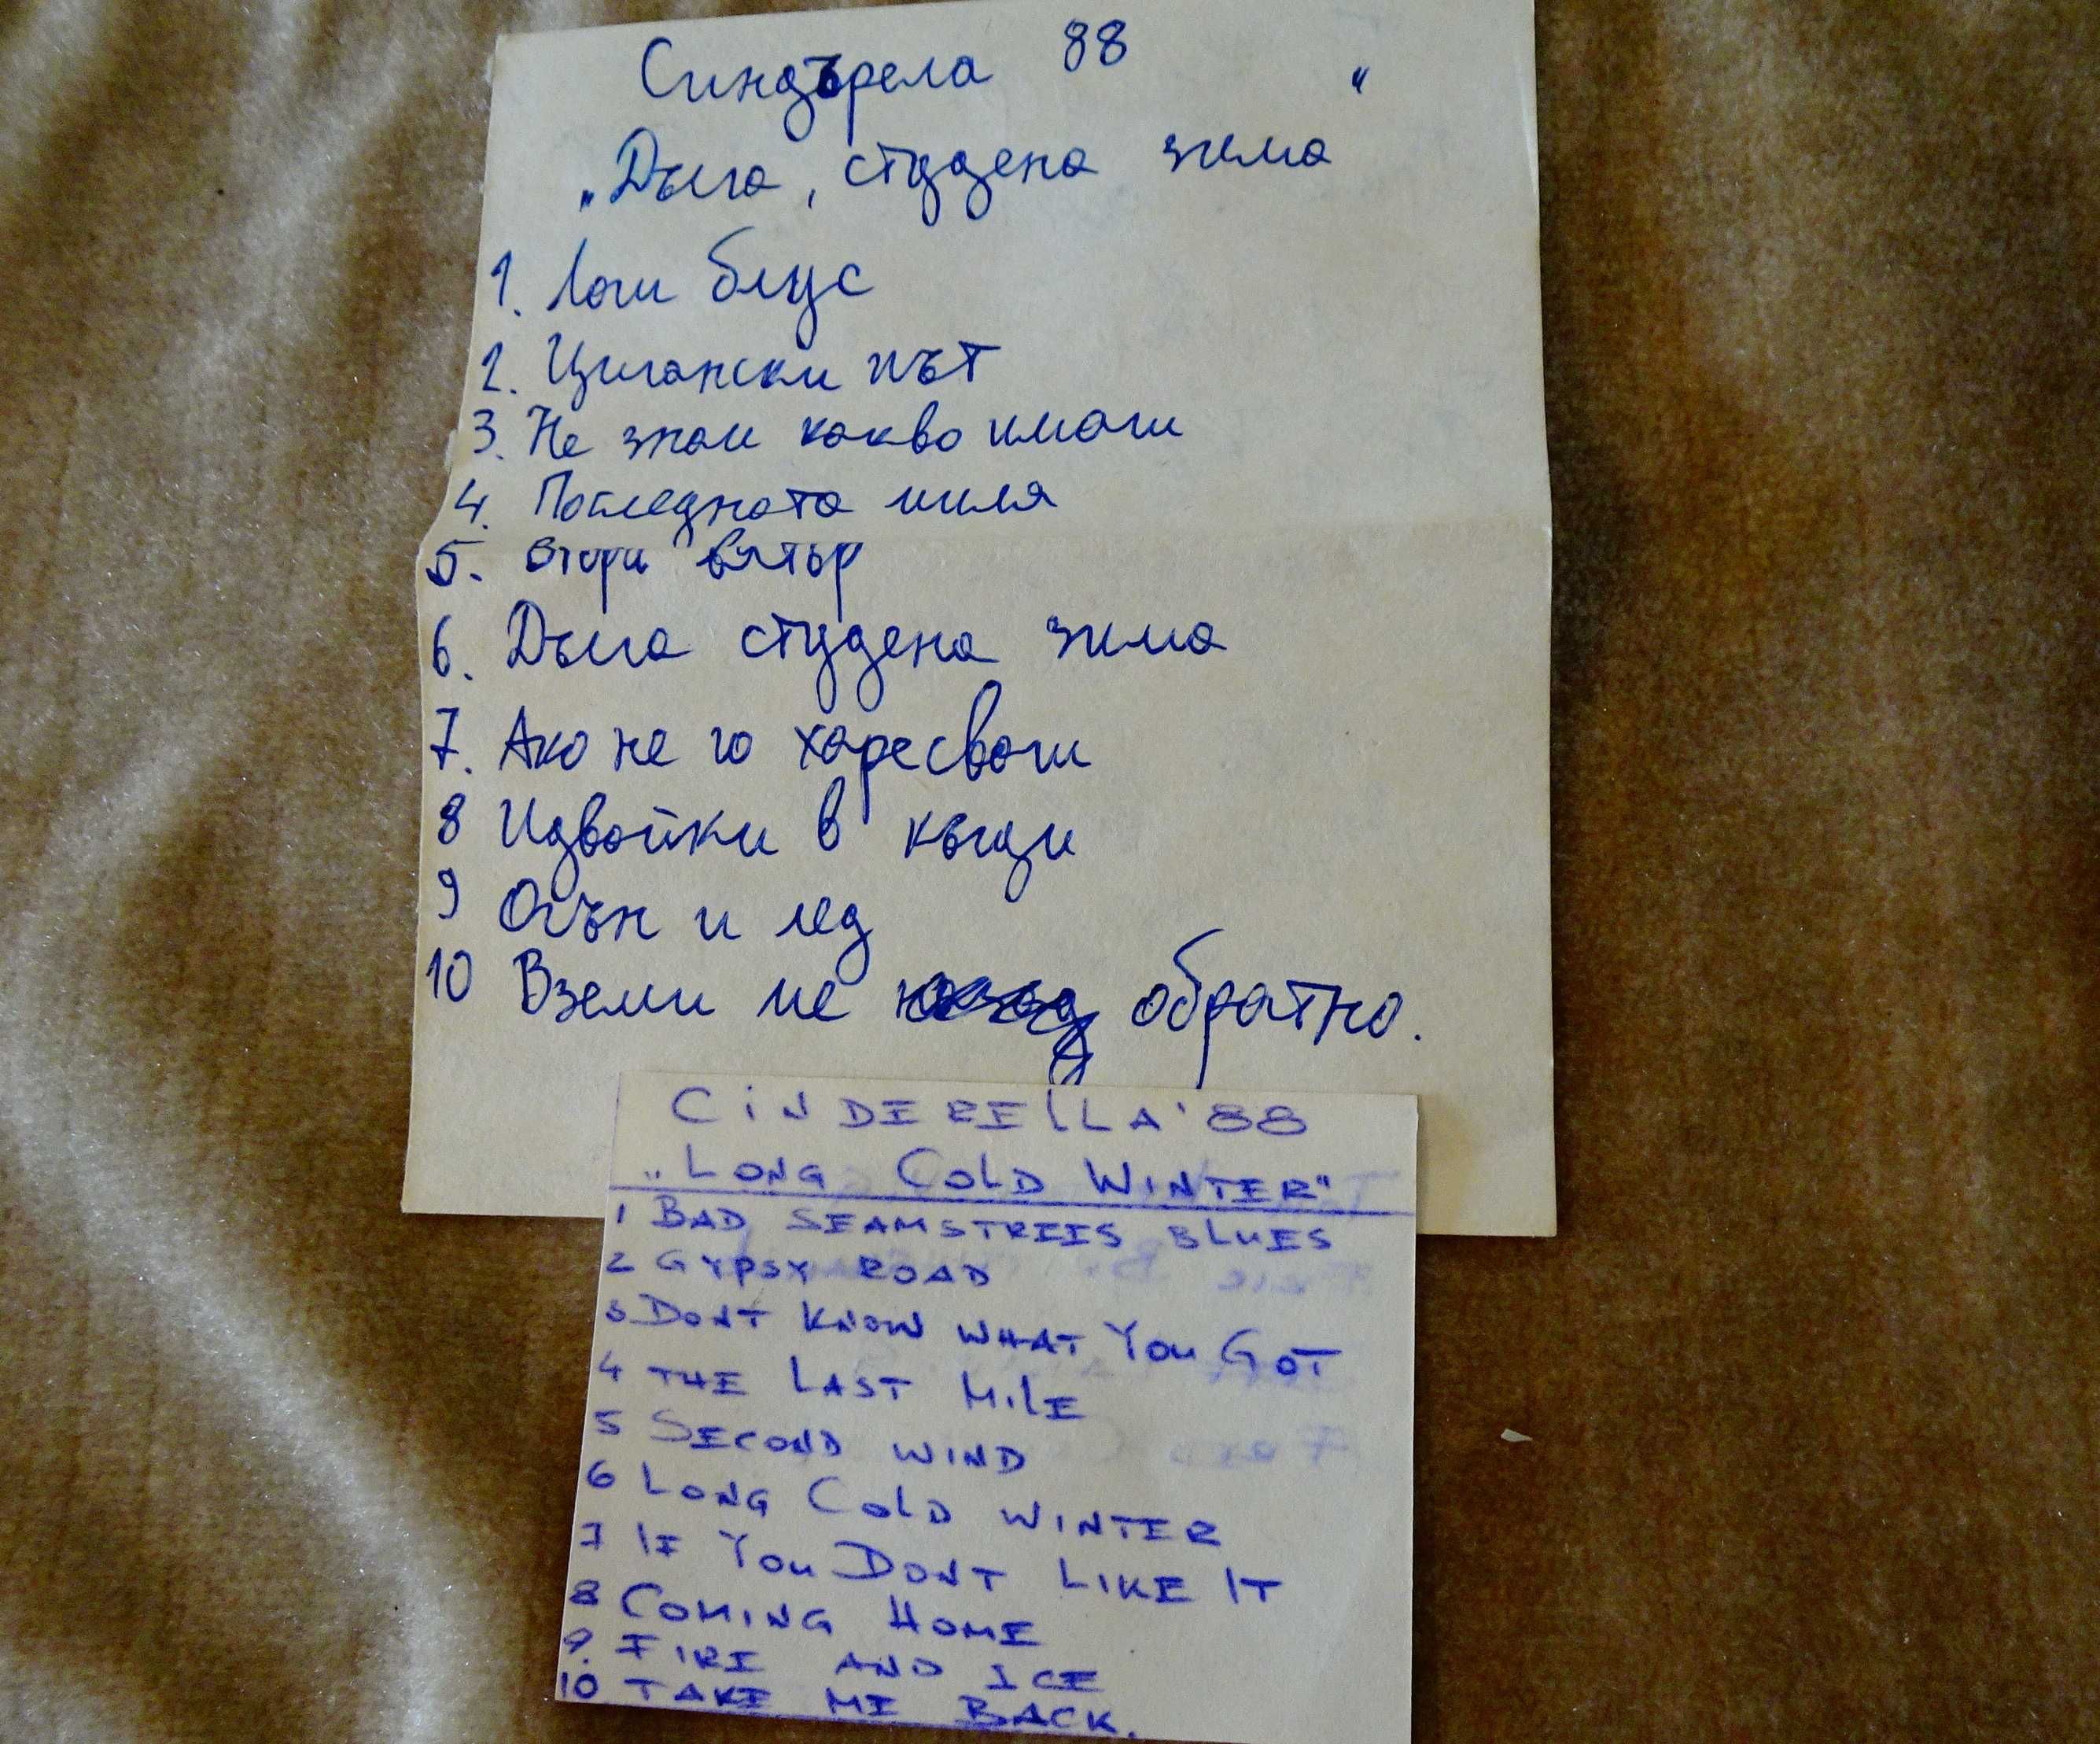 Синдърела 88 "
„Дълга, студена зима
1. Лош блус
2. Цигански път
3. Не знаш какво имаш
4. Последната миля
5. Втори вятър
6. Дълга студена зима
7. Ако не го харесваш
8 Идвайки в къщи
9 Огън и лед
10 Вземи ме обратно.
CiNDERELLA '88
„LONG COLD WINTER"
1 BAD SEAMSTREES BLUES
2 GYPSY ROAD
3 DONT KNOW WHAT YOU GOT
4 THE LAST MilE
5 SECOND WIND
6 LONG COLD WINTER
7 IF YOU DONT LIKE IT
8 COMING HOME
9. FIRE AND ICE
10 TAKE ME BACK.